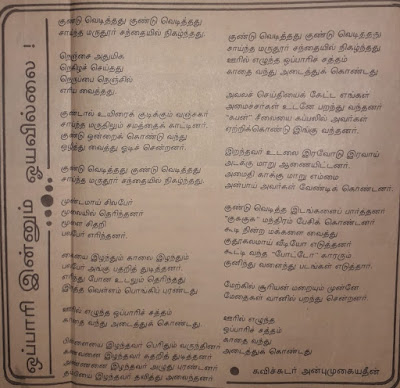 ஒப்பாரி இன்னும் ஓயவில்லை !
குண்டு வெடித்தது குண்டு வெடித்தது
சாய்ந்த மருதூர் சந்தையில் நிகழ்ந்தது.
நெஞ்சை அதுமிக
நெகிழச் செய்தது
நெருப்பை நெஞ்சில்
எரிய வைத்தது.
குண்டால் உயிரைக் குடிக்கும் வஞ்சகர்
சாய்ந்த மருதிலும் சமத்தைக் காட்டினர்.
குண்டு ஒன்றைக் கொண்டு வந்து
ஒழித்து வைத்து ஓடிச் சென்றனர்.
குண்டு வெடித்தது குண்டு வெடித்தது
சாய்ந்த மருதூர் சந்தையில் நிகழ்ந்தது.
முண்டமாய் சிலபேர்
மூலையில் தெரிந்தனர்
மூளை சிதறி
பலபேர் எரிந்தனர்.
கையை இழந்தும் காலை இழந்தும்
பலபேர் அங்கு பதறித் துடித்தனர்
எரிந்து போன உடலும் தெரிந்தது
இரத்த வெள்ளம் பொங்கிப் புரண்டது.
ஊரில் எழுந்த ஒப்பாரிச் சத்தம்
காதை வந்து அடைத்துக் கொண்டது.
பிள்ளையை இழந்தவர் பெரிதும் வருந்தினர்
கணவனை இழந்தவர் கதறித் துடித்தனர்
அண்ணனை இழந்தவர் அழுது புரண்டனர்
தாயை இழந்தவர் தவித்து அலைந்தனர்
குண்டு வெடித்தது குண்டு வெடித்தது
சாய்ந்த மருதூர் சந்தையில் நிகழ்ந்தது
ஊரில் எழுந்த ஒப்பாரிச் சத்தம்
காதை வந்து அடைத்துக் கொண்டது
அவலச் செய்தியைக் கேட்ட எங்கள்
அமைச்சர்கள் உடனே பறந்து வந்தனர்
"கபன்" சீலையை கப்பலில் அவர்கள்
ஏற்றிக்கொண்டு இங்கு வந்தனர்.
இறந்தவர் உடலை இரவோடு இரவாய்
அடக்கு மாறு ஆணையிட்டனர்.
அமைதி காக்கு மாறு எம்மை
அன்பாய் அவர்கள் வேண்டிக் கொண்டனர்.
குண்டு வெடித்த இடங்களைப் பார்த்தனர்
"குசுகுசு" மந்திரம் பேசிக் கொண்டனர்
கூடி நின்ற மக்களை வைத்து
குதூகலமாய் வீடியோ எடுத்தனர்
கூட்டி வந்த "போட்டோ" காரரும்
குனிந்து வளைந்து படங்கள் எடுத்தார்.
மேற்கில் சூரியன் மறையும் முன்னே
மேதைகள் வானில் பறந்து சென்றனர்.
ஊரில் எழுந்த
ஒப்பாரிச் சத்தம்
காதை வந்து
அடைத்துக் கொண்டது
● கவிச்சுடர் அன்புமுகையதீன்